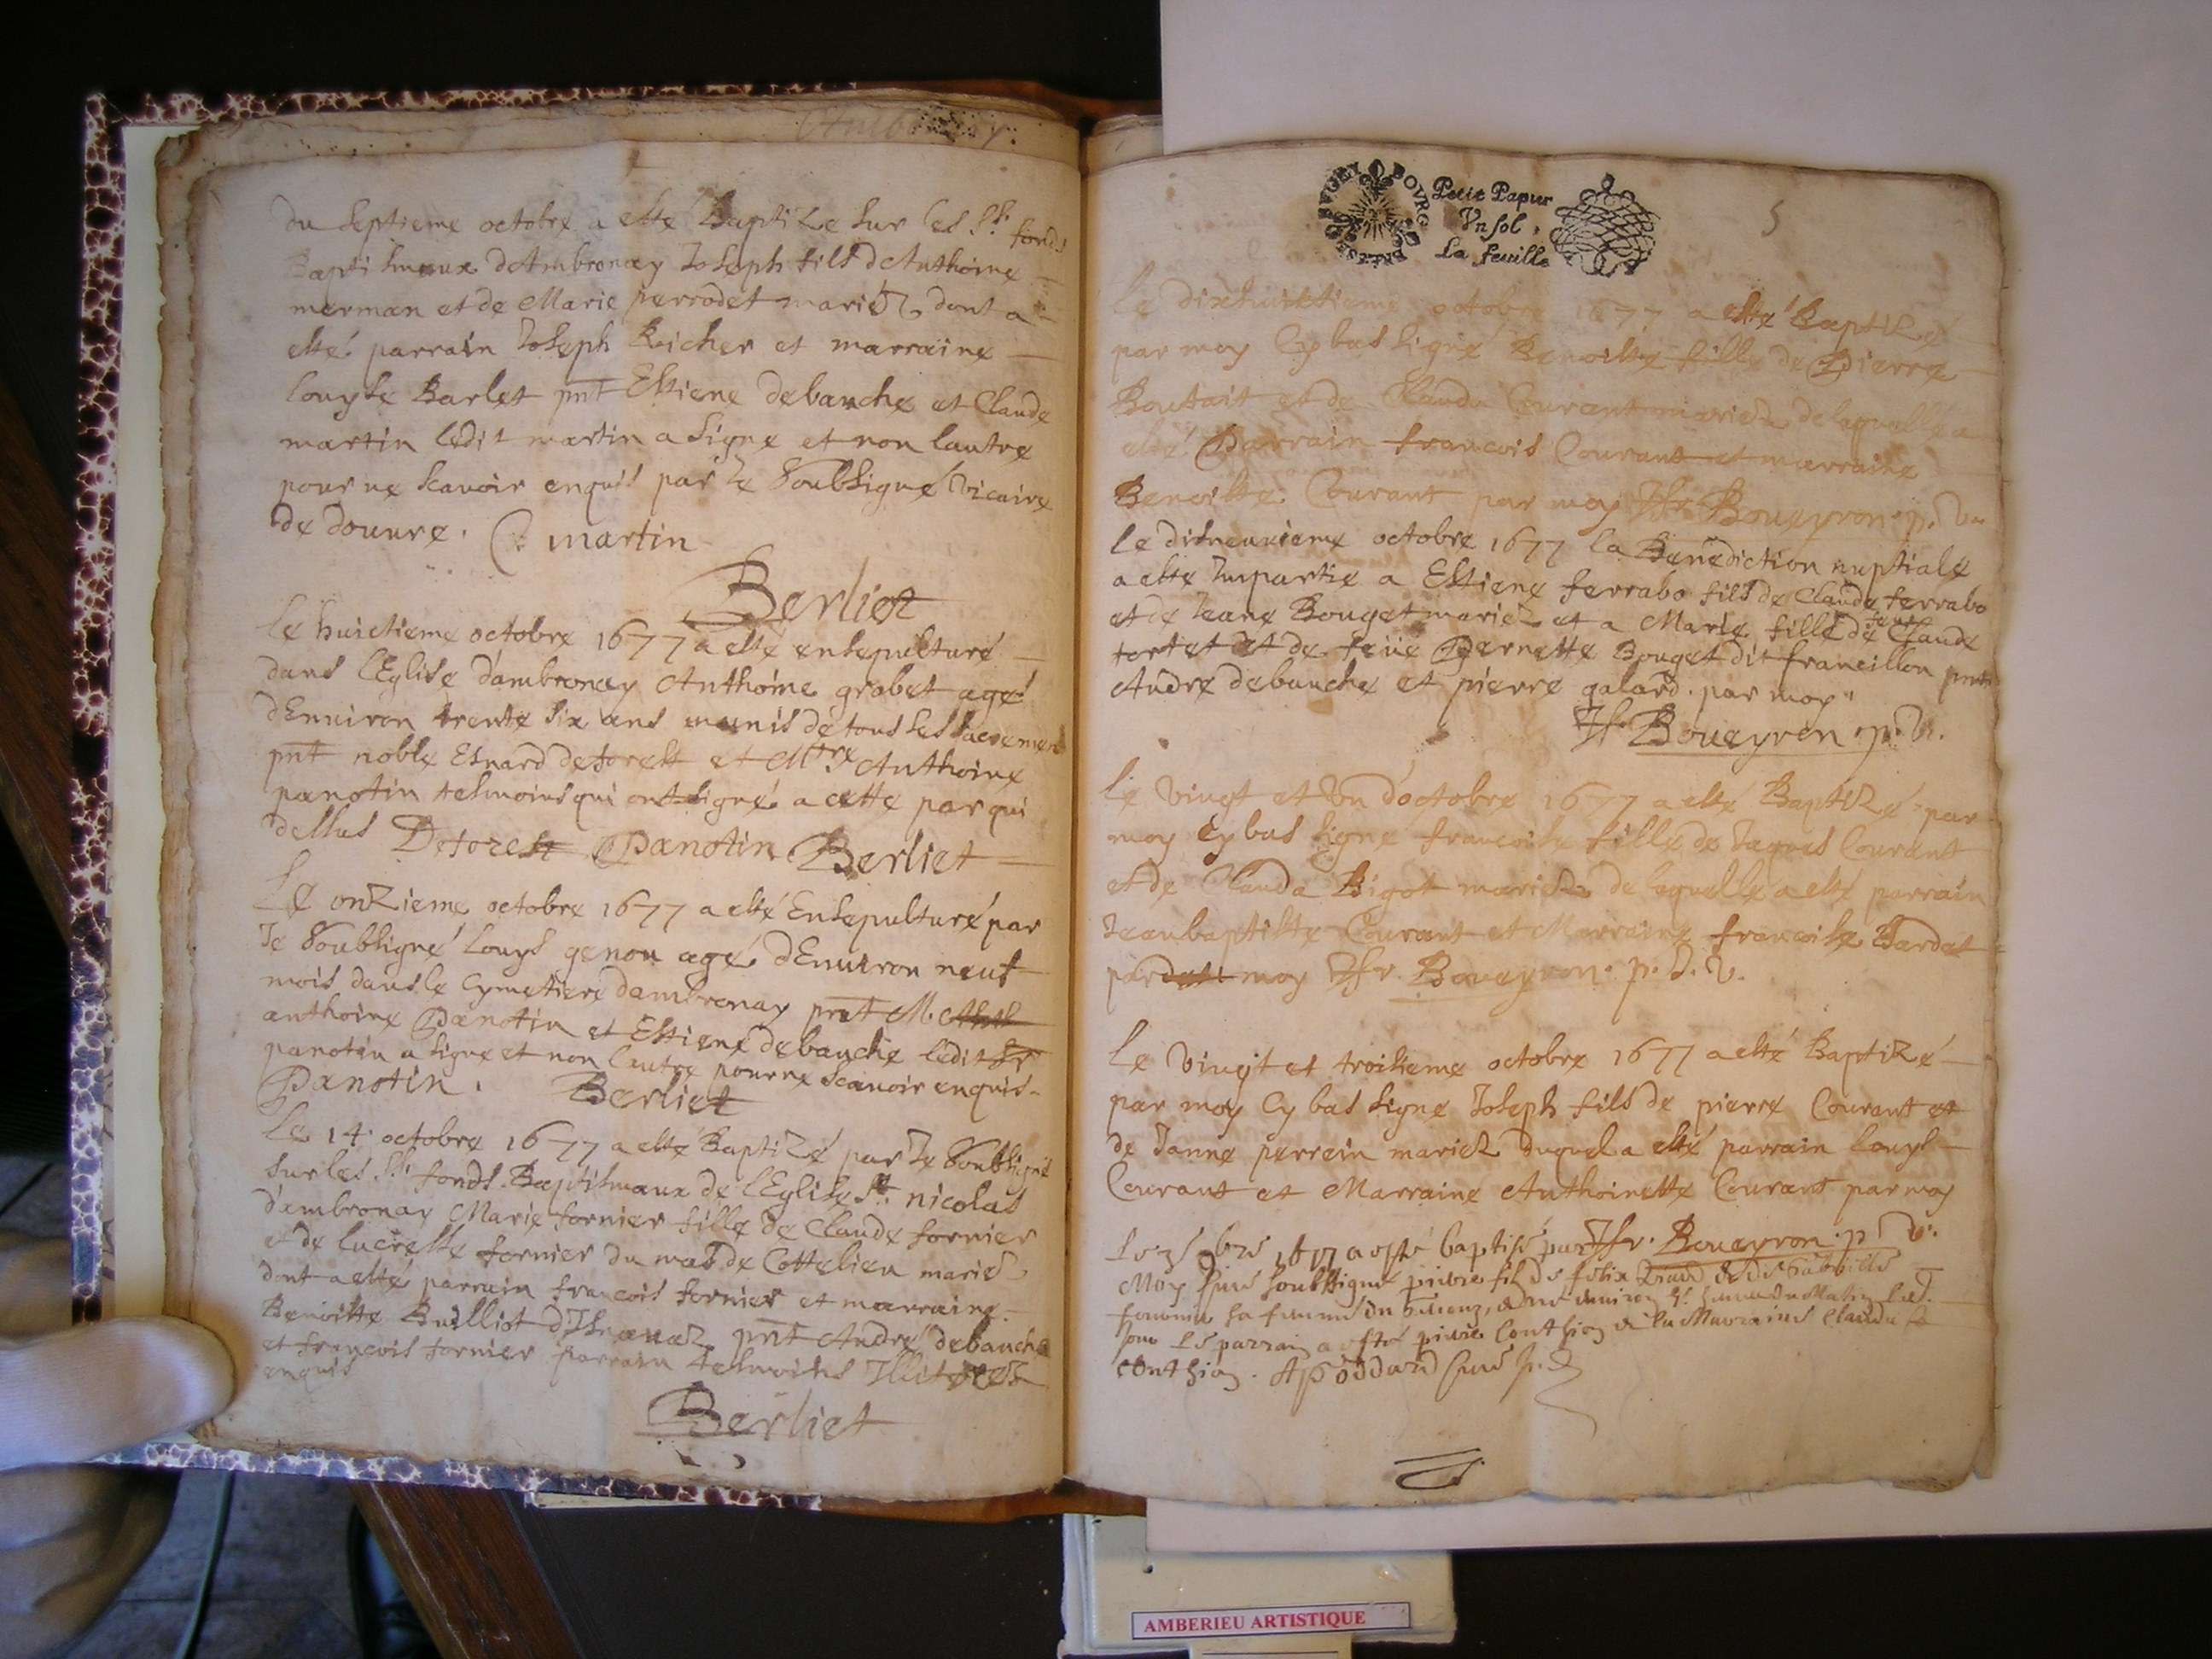 du septieme octobre a esté Baptize sur les Sts. fonds
Baptismaux dAmbronay Joseph fils dAnthoine
merman et de Marie perrodet mariez dont a
esté parrain Joseph Richer et marraine
louyse Barlet pnt Estiene debauche et Claude
martin ledit martin a signé et non lautre
pour ne scavoir enquis par Je Soubsigné Vicaire
de douvre. C. martin
Berliet
le huictieme octobre 1677 a esté ensepulturé
dans lEglise d'ambronay Anthoine grabet agé
dEnviron trente six ans munis de tous ses sacremen
pnt noble Esnard deforest et Mtre Anthoine
panotin tesmoins qui ont signé a cette par qui
dessus Deforest Panotin Berliet
Le onzieme octobre 1677 a esté Ensepulturé par
Je Soubsigné louys genou agé dEnviron neuf
mois dans le Cymetiere dambronay pnt M.
anthoine Panotin et Estiene debauche ledit
panotin a signe et non lautre pour ne scavoir enquis
Panotin. Berliet
Le 14 octobre 1677 a esté Baptizé par Je Soubsigné
sur les Sts. fonds Baptismaux de lEglise St. nicolas
d'ambronay Marie fornier fille de Claude fornier
et de lucresse fornier du mas de Cottelieu mariés
dont a esté parrain francois fornier et marraine
Benoitte Builliot pnt André debauche
et francois fornier parrain tesmoins Illiterez
enquis
Berliet
BOURG
Petit Papier
Un sol,
La feuille
5
le dixhuictieme octobre 1677 a esté Baptizé
par moy Cy bas signé Benoitte fille de Pierre
Boutait et de Clauda Courant mariez de laquelle a
esté Parrain francois Courant et marraine
Benoitte Courant par moy Boueyron p. V.
le disneuvieme octobre 1677 la Benediction nuptiale
a esté Impartie a Estiene ferrabo fils de Claude ferrabo
et de Jeane Bouget mariez et a Marie fille de feu Claude
tortet et de feüe Pernette Bouget dit francillon pnts
André debauche et pierre galard. par moy
Boueyron p. V.
le vingt et Un d'octobre 1677 a esté Baptizé par
moy Cy bas signé francoise fille de Jaques Courant
et de Clauda Bigot mariez de laquelle a esté parrain
Jeanbaptiste Courant et Marraine francoise Bardet
par moy Boueyron. p. V.
le vingt et troisieme octobre 1677 a esté Baptizé
par moy Cy bas signé Joseph fils de pierre Courant et
de Janne perrein mariez duquel a esté parrain louys
Courant et Marraine Anthoinette Courant par moy
Boueyron. p V.
1677 a esté baptisé par
Moy soubsigné pierre fils de felix
sa femme
le parrain a esté pierre Conthion et la Marraine Clauda
Conthion.
AMBERIEU ARTISTIQUE